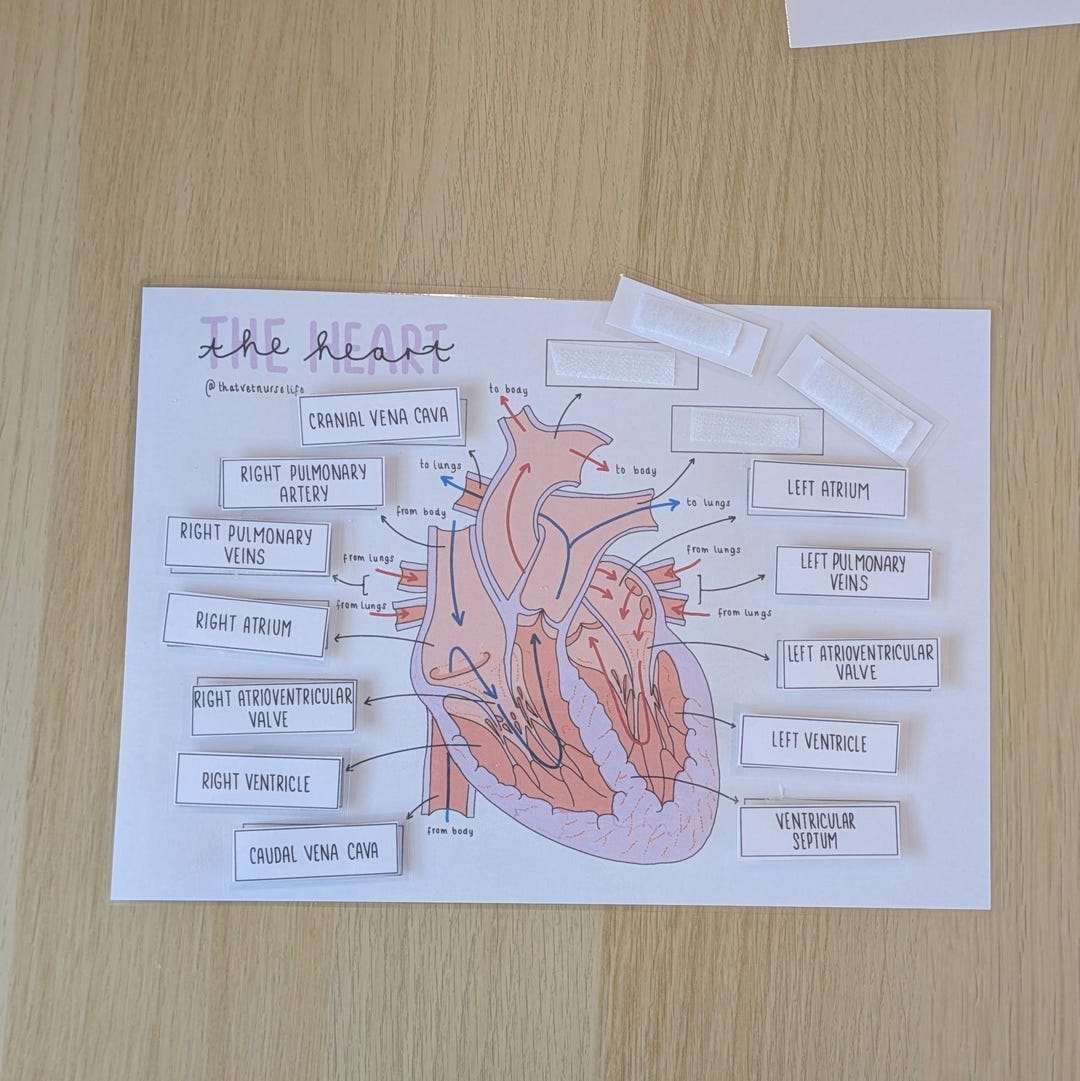 THE HEART
the heart
@thatvetnurselife
CRANIAL VENA CAVA
RIGHT PULMONARY
ARTERY
RIGHT PULMONARY
VEINS
RIGHT ATRIUM
RIGHT ATRIOVENTRICULAR
VALVE
RIGHT VENTRICLE
CAUDAL VENA CAVA
to body
to body
to lungs
to lungs
from body
from lungs
from lungs
from lungs
from lungs
from body
LEFT ATRIUM
LEFT PULMONARY
VEINS
LEFT ATRIOVENTRICULAR
VALVE
LEFT VENTRICLE
VENTRICULAR
SEPTUM